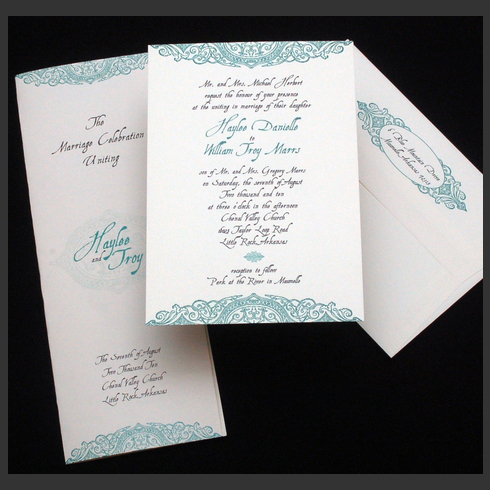 The
Marriage Celebration
Uniting
Haylee
and Troy
The Seventh of August
Two Thousand Ten
Chenal Valley Church
Little Rock, Arkansas
Mr. and Mrs. Michael Herbert
request the honour of your presence
at the uniting in marriage of their daughter
Haylee Danielle
to
William Troy Marrs
son of Mr. and Mrs. Gregory Marrs
on Saturday, the seventh of August
Two thousand and ten
at three o'clock in the afternoon
Chenal Valley Church
Taylor Loop Road
Little Rock, Arkansas
reception to follow
Park at the River in Maumelle